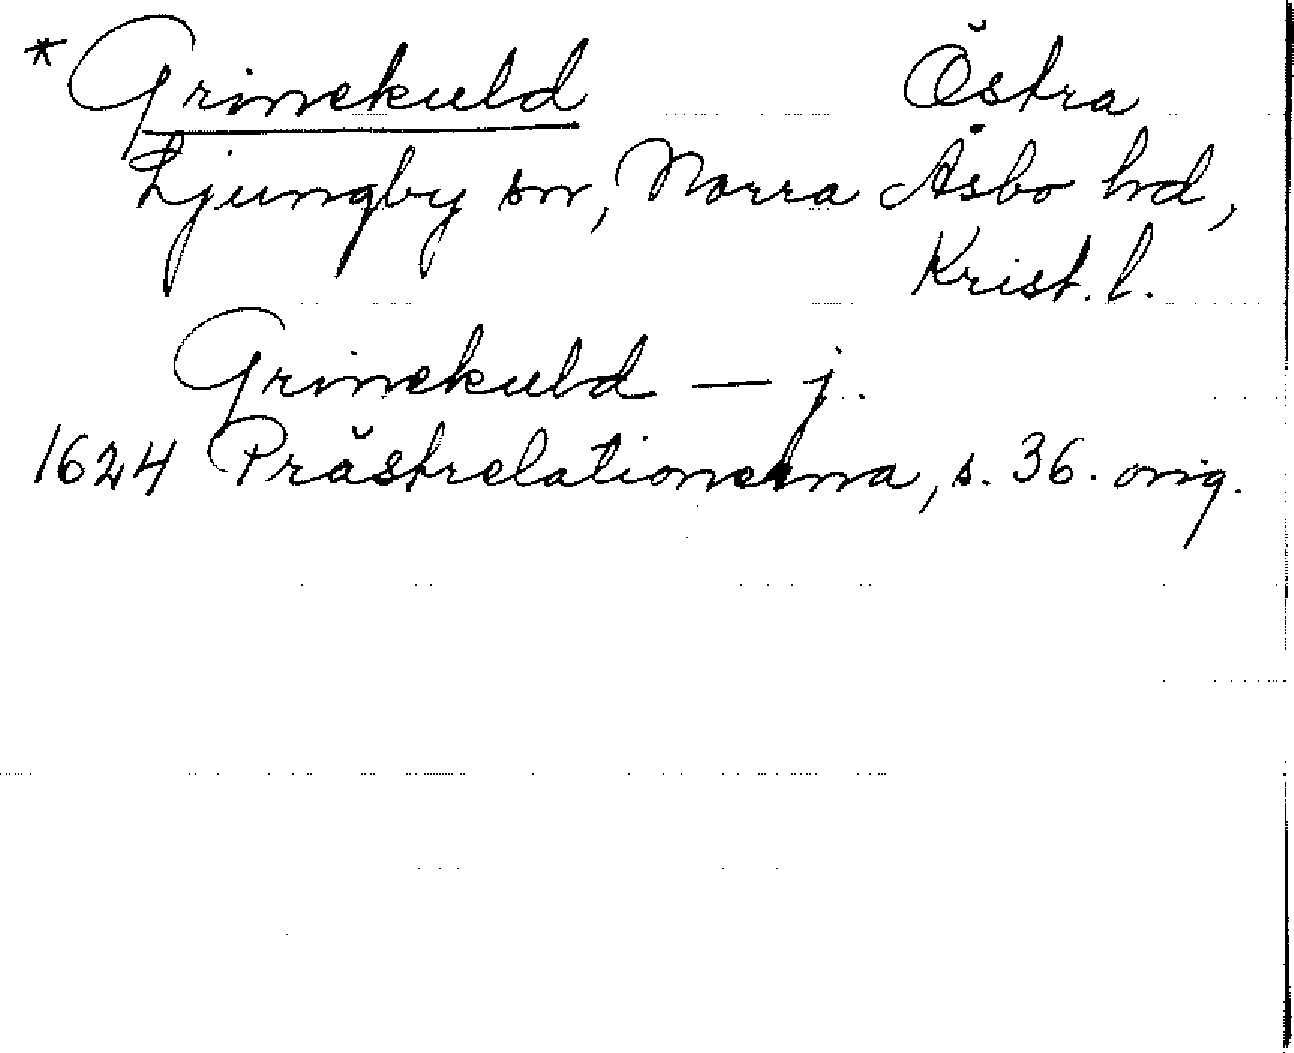 *Grinekuld Östra
Ljungby sn, Norra Åsbo hd,
Krist. l.
Grinekuld — j.
1624 Prästrelationerna, s. 36. orig.